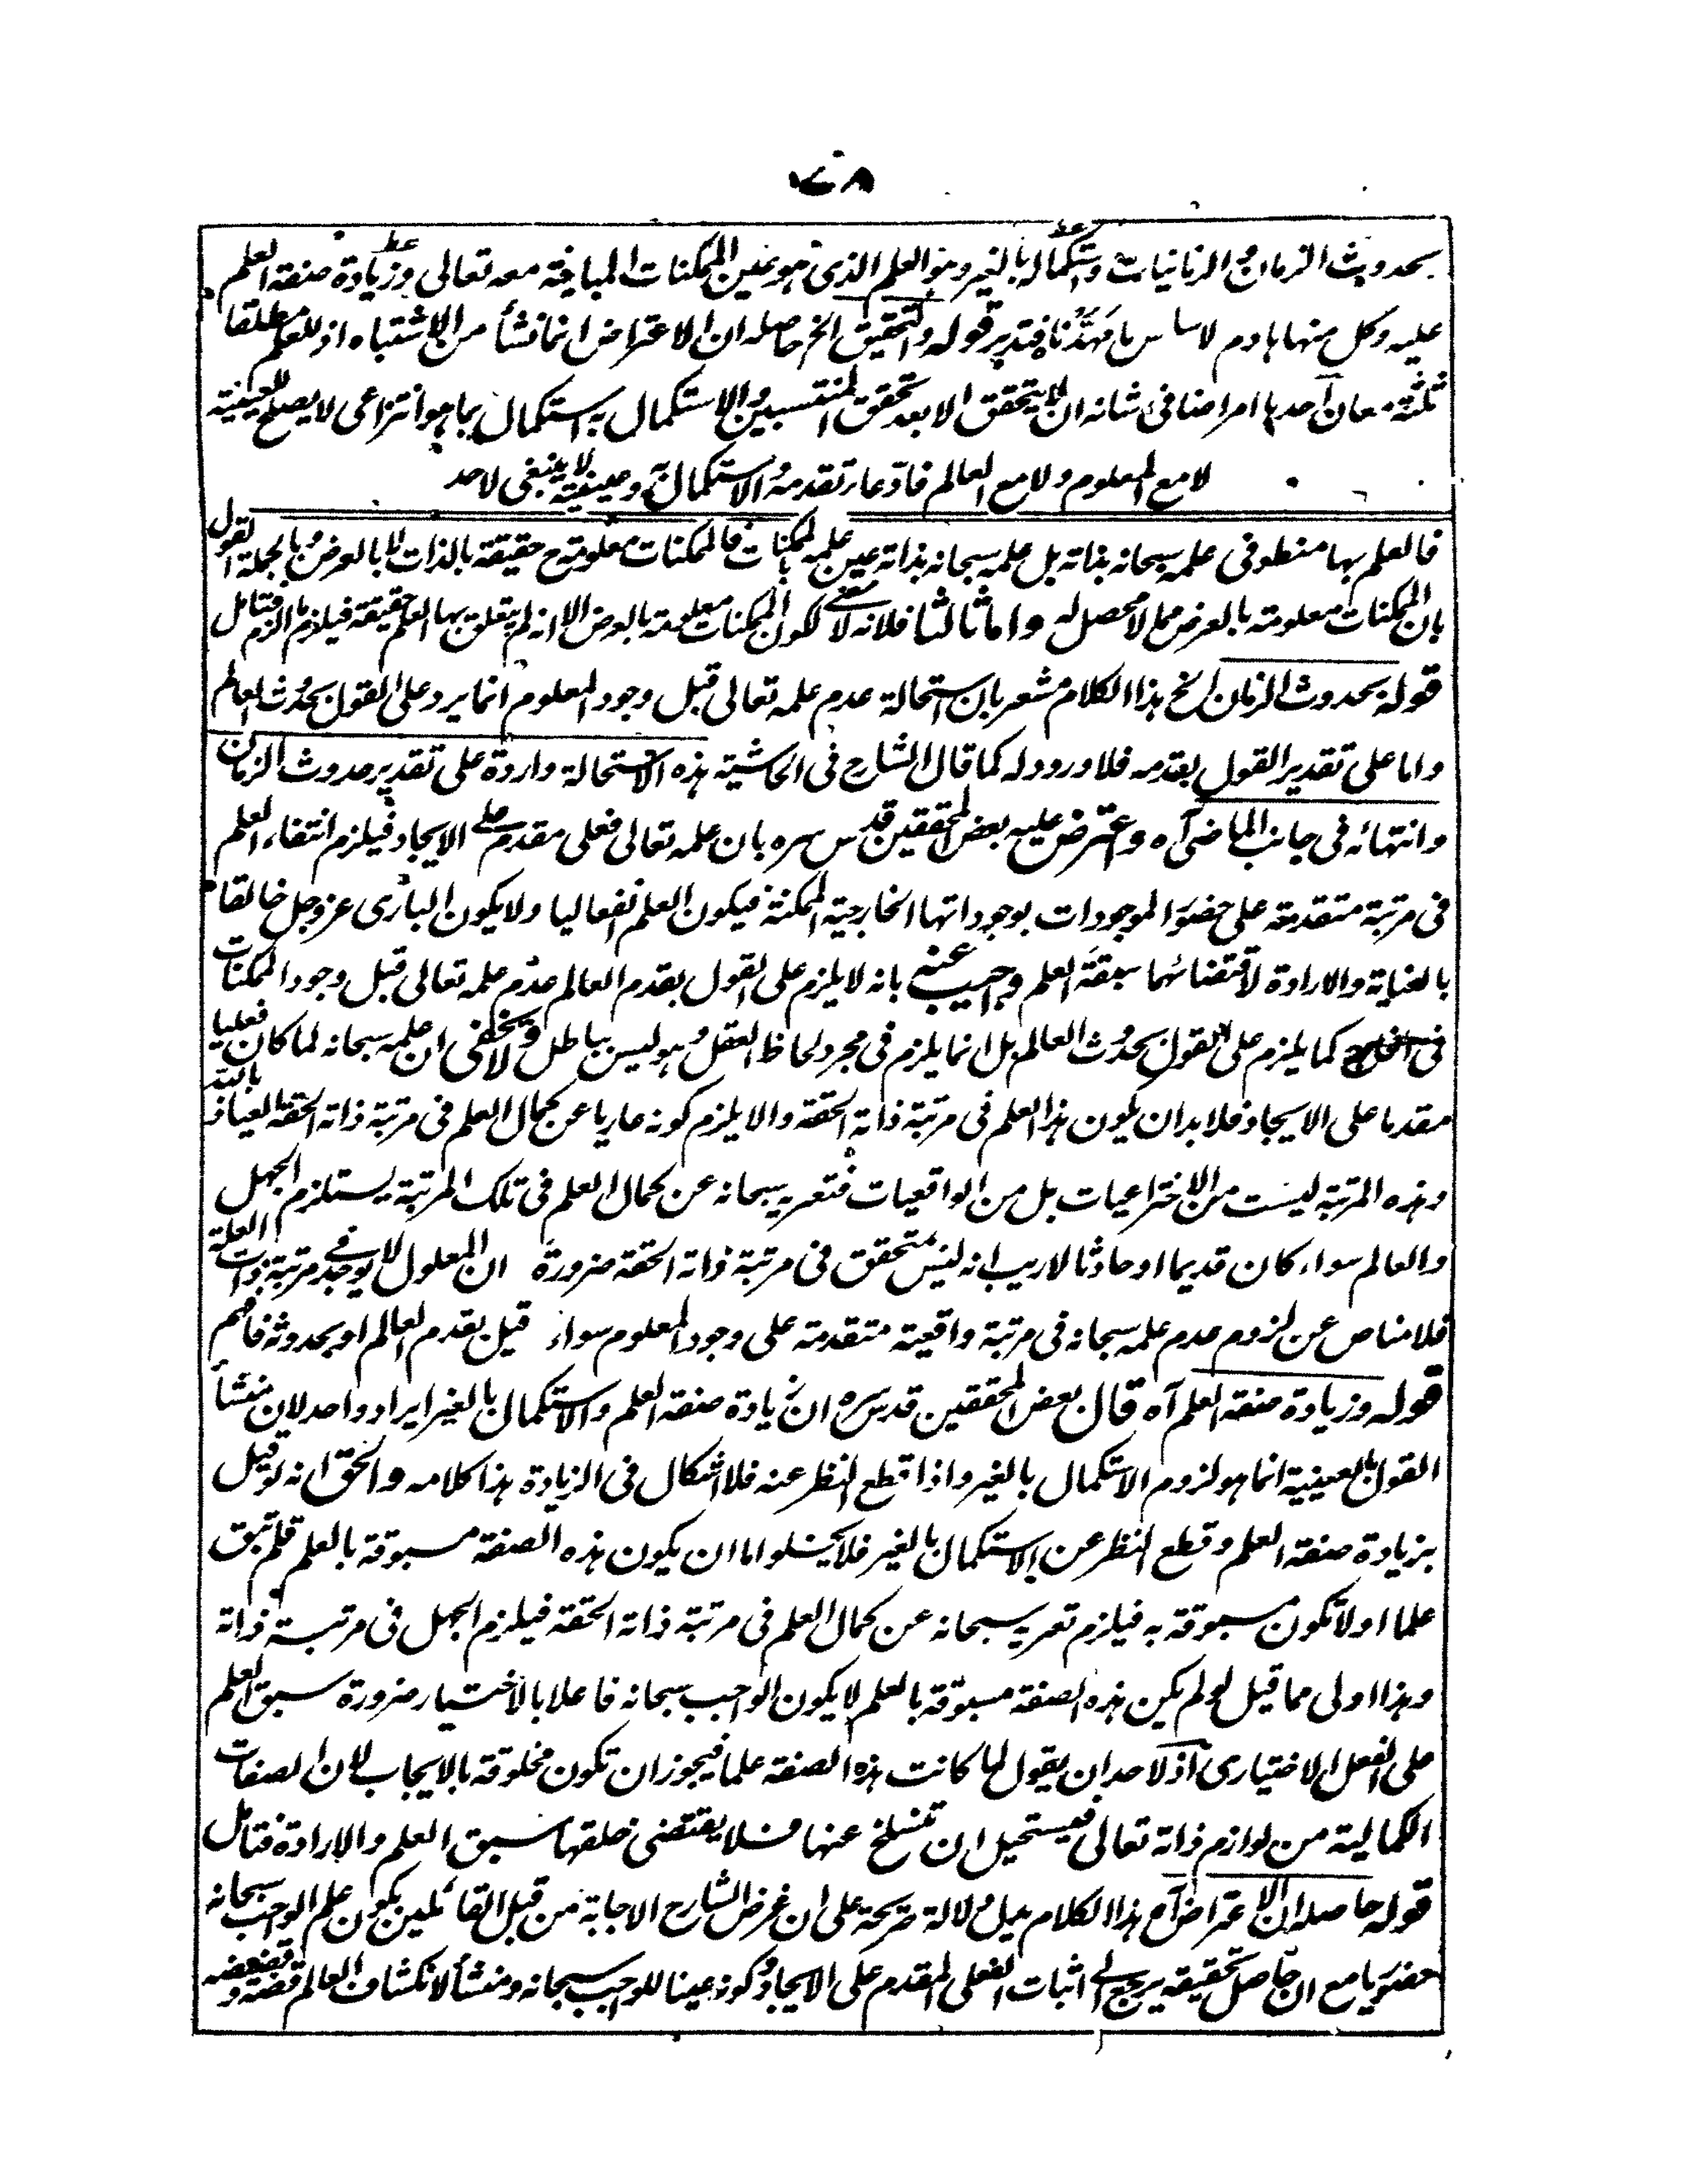 ١٧٨
بحدوث الزمان والزمانيات واستكماله بالغير وهو العلم الذى هو عين الممكنات المباينة معه تعالى وزيادة صفة العلم
عليه وكل منها هادم لاساس ما مهدنا فتدبر قوله والتحقيق الخ حاصله ان الاعتراض انما نشأ من الاشتباه اذ للعلم مطلقا
ثلثة معان احدها امر اضافى شانه ان لا يتحقق الا بعد تحقق المنتسبين والاستكمال به استكمال بما هو انتزاعى لا يصلح للعينية
لا مع المعلوم ولا مع العالم فادعاء تقدمه والاستكمال به وعينيته لا ينبغى لاحد
فالعلم بها منطو فى علمه سبحانه بذاته بل علمه سبحانه بذاته عين علمه بالممكنات فالممكنات معلومة ح حقيقة بالذات لا بالعرض وبالجملة القول
بان الممكنات معلومة بالعرض مما لا محصل له واما ثالثا فلانه لا معنى لكون الممكنات معلومة بالعرض الا انه لم يتعلق بها العلم حقيقة فيلزم ما الزم فتامل
قوله بحدوث الزمان الخ هذا الكلام مشعر بان استحالة عدم علمه تعالى قبل وجود المعلوم انما يرد على القول بحدوث العالم
واما على تقدير القول بقدمه فلا ورود له كما قال الشارح فى الحاشية هذه الاستحالة واردة على تقدير حدوث الزمان
وانتهائه فى جانب الماضى آه واعترض عليه بعض المحققين قدس سره بان علمه تعالى فعلى مقدم على الايجاد فيلزم انتفاء العلم
فى مرتبة متقدمة على حضور الموجودات بوجوداتها الخارجية الممكنة فيكون العلم انفعاليا ولا يكون البارى عز وجل خالقا
بالعناية والارادة لاقتضائهما سبقة العلم واجيب عنه بانه لا يلزم على القول بقدم العالم عدم علمه تعالى قبل وجود الممكنات
فى الخارج كما يلزم على القول بحدوث العالم بل انما يلزم فى مجرد لحاظ العقل وهو ليس بباطل ولا يخفى ان علمه سبحانه لما كان فعليا
مقدما على الايجاد فلا بد ان يكون هذا العلم فى مرتبة ذاته الحقة والا يلزم كونه عاريا عن كمال العلم فى مرتبة ذاته الحقة العياذ بالله
وهذه المرتبة ليست من الاختراعيات بل من الواقعيات فتعريه سبحانه عن كمال العلم فى تلك المرتبة يستلزم الجهل
والعالم سواء كان قديما او حادثا لا ريب انه ليس بمتحقق فى مرتبة ذاته الحقة ضرورة ان المعلول لا يوجد فى مرتبة ذات العلة
فلا مناص عن لزوم عدم علمه سبحانه فى مرتبة واقعية متقدمة على وجود المعلوم سواء قيل بقدم العالم او بحدوثه فافهم
قوله وزيادة صفة العلم آه قال بعض المحققين قدس سره ان زيادة صفة العلم والاستكمال بالغير ايراد واحد لان منشأ
القول بالعينية انما هو لزوم الاستكمال بالغير واذا قطع النظر عنه فلا اشكال فى الزيادة هذا كلامه والحق انه لو قيل
بزيادة صفة العلم وقطع النظر عن الاستكمال بالغير فلا يخلو اما ان يكون هذه الصفة مسبوقة بالعلم فلم تبق
علما او لا تكون مسبوقة به فيلزم تعريه سبحانه عن كمال العلم فى مرتبة ذاته الحقة فيلزم الجهل فى مرتبة ذاته
وهذا اولى مما قيل لو لم يكن هذه الصفة مسبوقة بالعلم لا يكون الواجب سبحانه فاعلا بالاختيار ضرورة سبق العلم
على الفعل الاختيارى اذ لاحد ان يقول لما كانت هذه الصفة علما فيجوز ان تكون مخلوقة بالايجاب لان الصفات
الكمالية من لوازم ذاته تعالى فيستحيل ان تنسلخ عنها فلا يقتضى خلقها سبق العلم والارادة فتامل
قوله حاصله ان الاعتراض آه هذا الكلام يدل دلالة صريحة على ان غرض الشارح الاجابة من قبل القائلين بكون علم الواجب سبحانه
حضوريا مع ان حاصل تحقيقه يرجع الى اثبات الفعلى المقدم على الايجاد وكونه عينا للواجب سبحانه ومنشأ لانكشاف العالم قضه وقضيضه